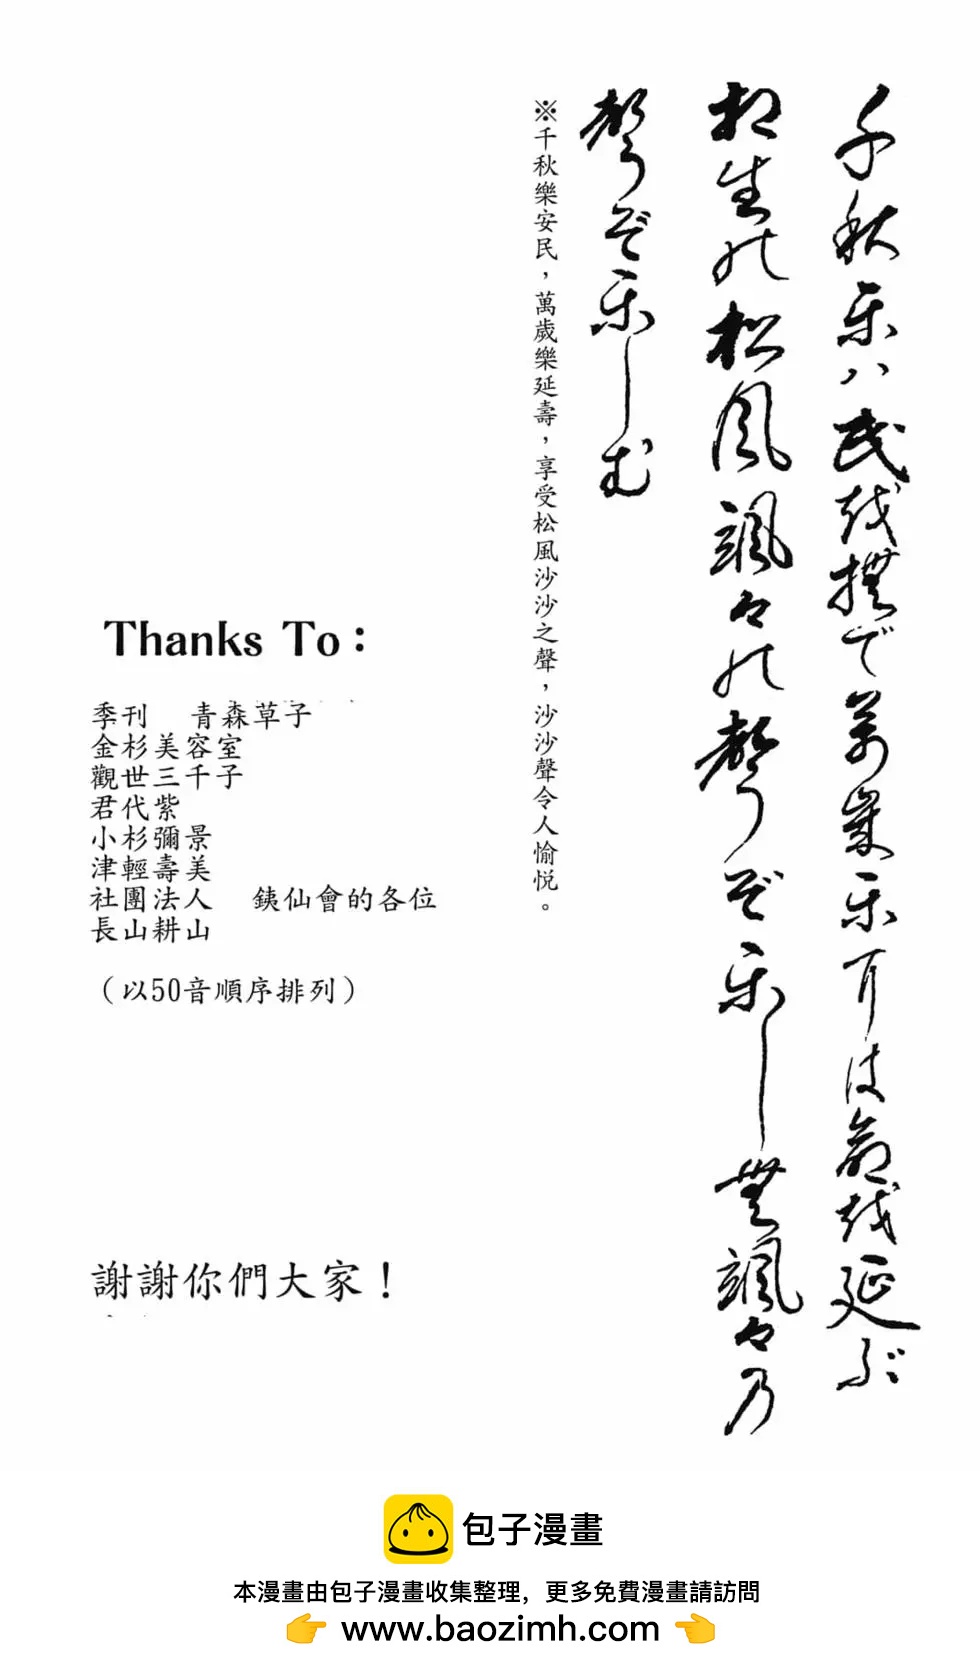 千秋楽ハ民を撫で萬歳楽には命を延ぶ
相生の松風颯々の聲ぞ楽しむ颯々乃
聲ぞ楽しむ
※千秋樂安民，萬歲樂延壽，享受松風沙沙之聲，沙沙聲令人愉悅。
Thanks To：
季刊　青森草子
金杉美容室
觀世三千子
君代紫
小杉彌景
津輕壽美
社團法人　銕仙會的各位
長山耕山
（以50音順序排列）
謝謝你們大家！
包子漫畫
本漫畫由包子漫畫收集整理，更多免費漫畫請訪問
👉 www.baozimh.com 👈